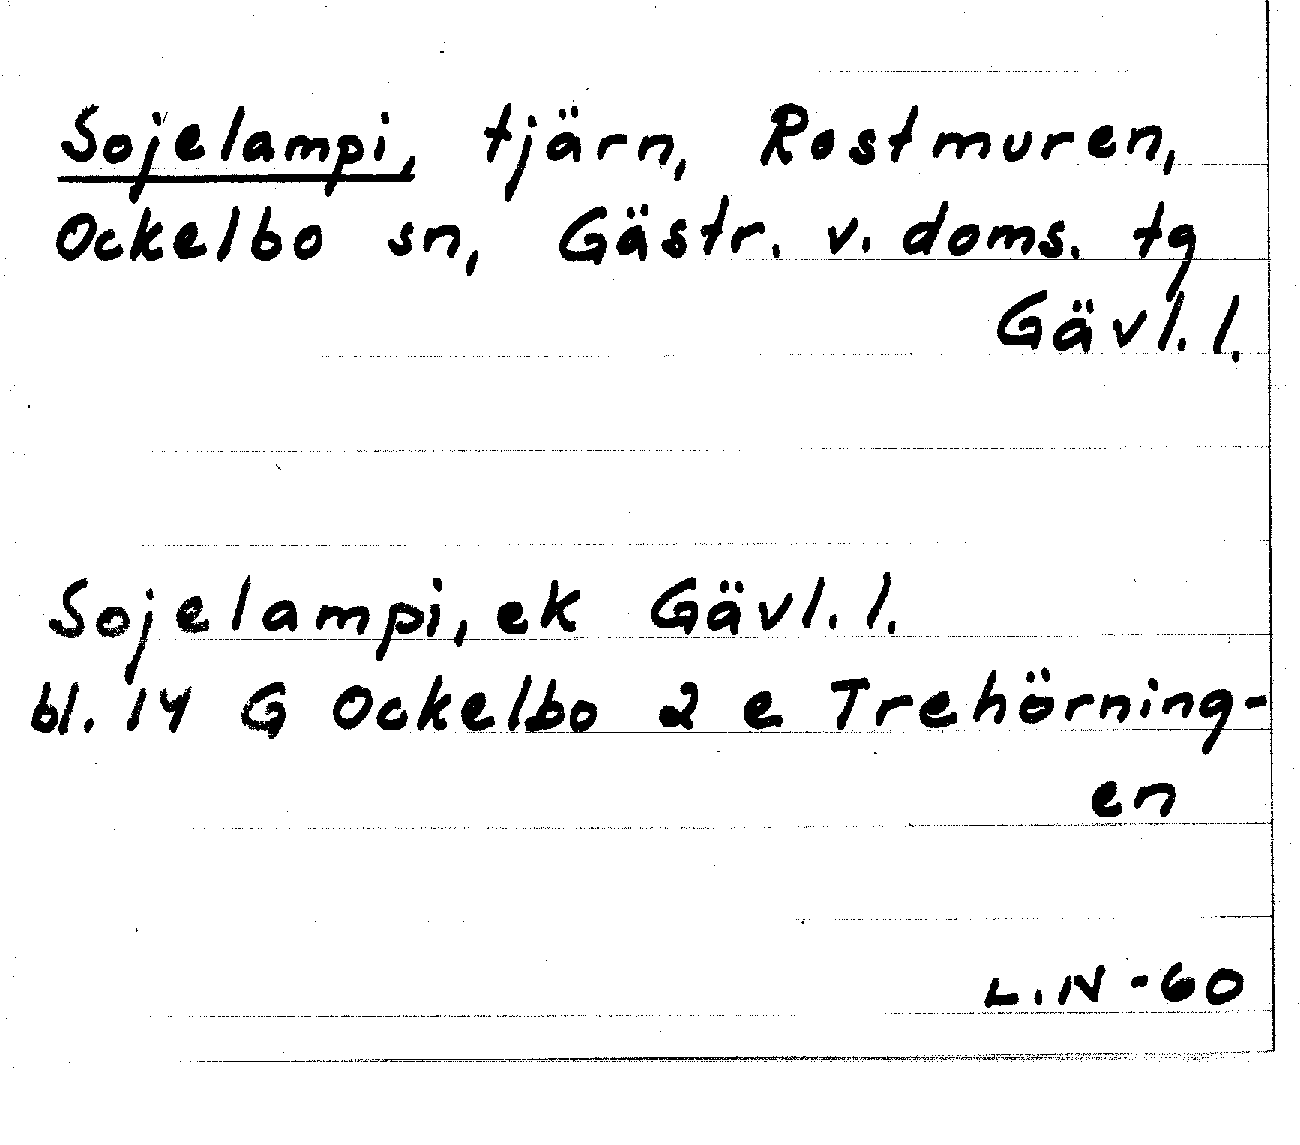 Sojelampi, tjärn, Rostmuren,
Ockelbo sn, Gästr. v. doms. tg
Gävl. l.
Sojelampi, ek Gävl. l.
bl. 14 G Ockelbo 2 e Trehörning-
en
L.N -60